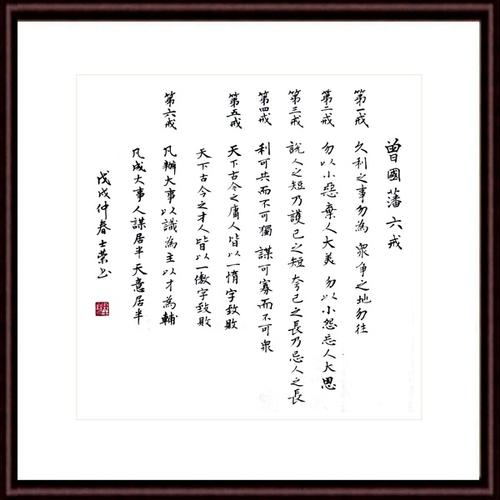 曾國藩六戒
第一戒 久利之事勿為 衆争之地勿往
第二戒 勿以小惡棄人大美 勿以小怨忘人大恩
第三戒 說人之短乃護己之短 夸己之長乃忌人之長
第四戒 利可共而不可獨 謀可寡而不可衆
第五戒 天下古今之庸人皆以一惰字致敗
天下古今之才人皆以一傲字致敗
第六戒 凡辦大事以識為主以才為輔
凡成大事人謀居半天意居半
戊戌仲春士榮书